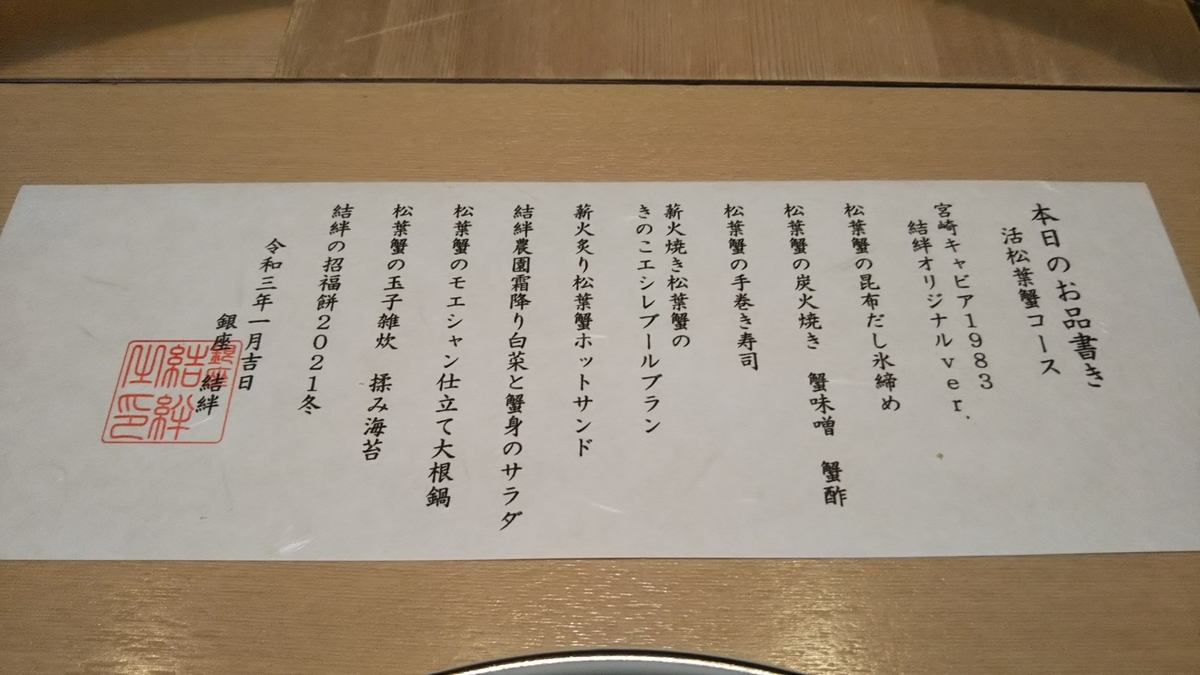 本日のお品書き
活松葉蟹コース
宮崎キャビア1983
結絆オリジナルver.
松葉蟹の昆布だし氷締め
松葉蟹の炭火焼き　蟹味噌　蟹酢
松葉蟹の手巻き寿司
薪火焼き松葉蟹の
きのこエシレブールブラン
薪火炙り松葉蟹ホットサンド
結絆農園霜降り白菜と蟹身のサラダ
松葉蟹のモエシャン仕立て大根鍋
松葉蟹の玉子雑炊　揉み海苔
結絆の招福餅2021冬
令和三年一月吉日
銀座　結絆
銀座
結絆
之印